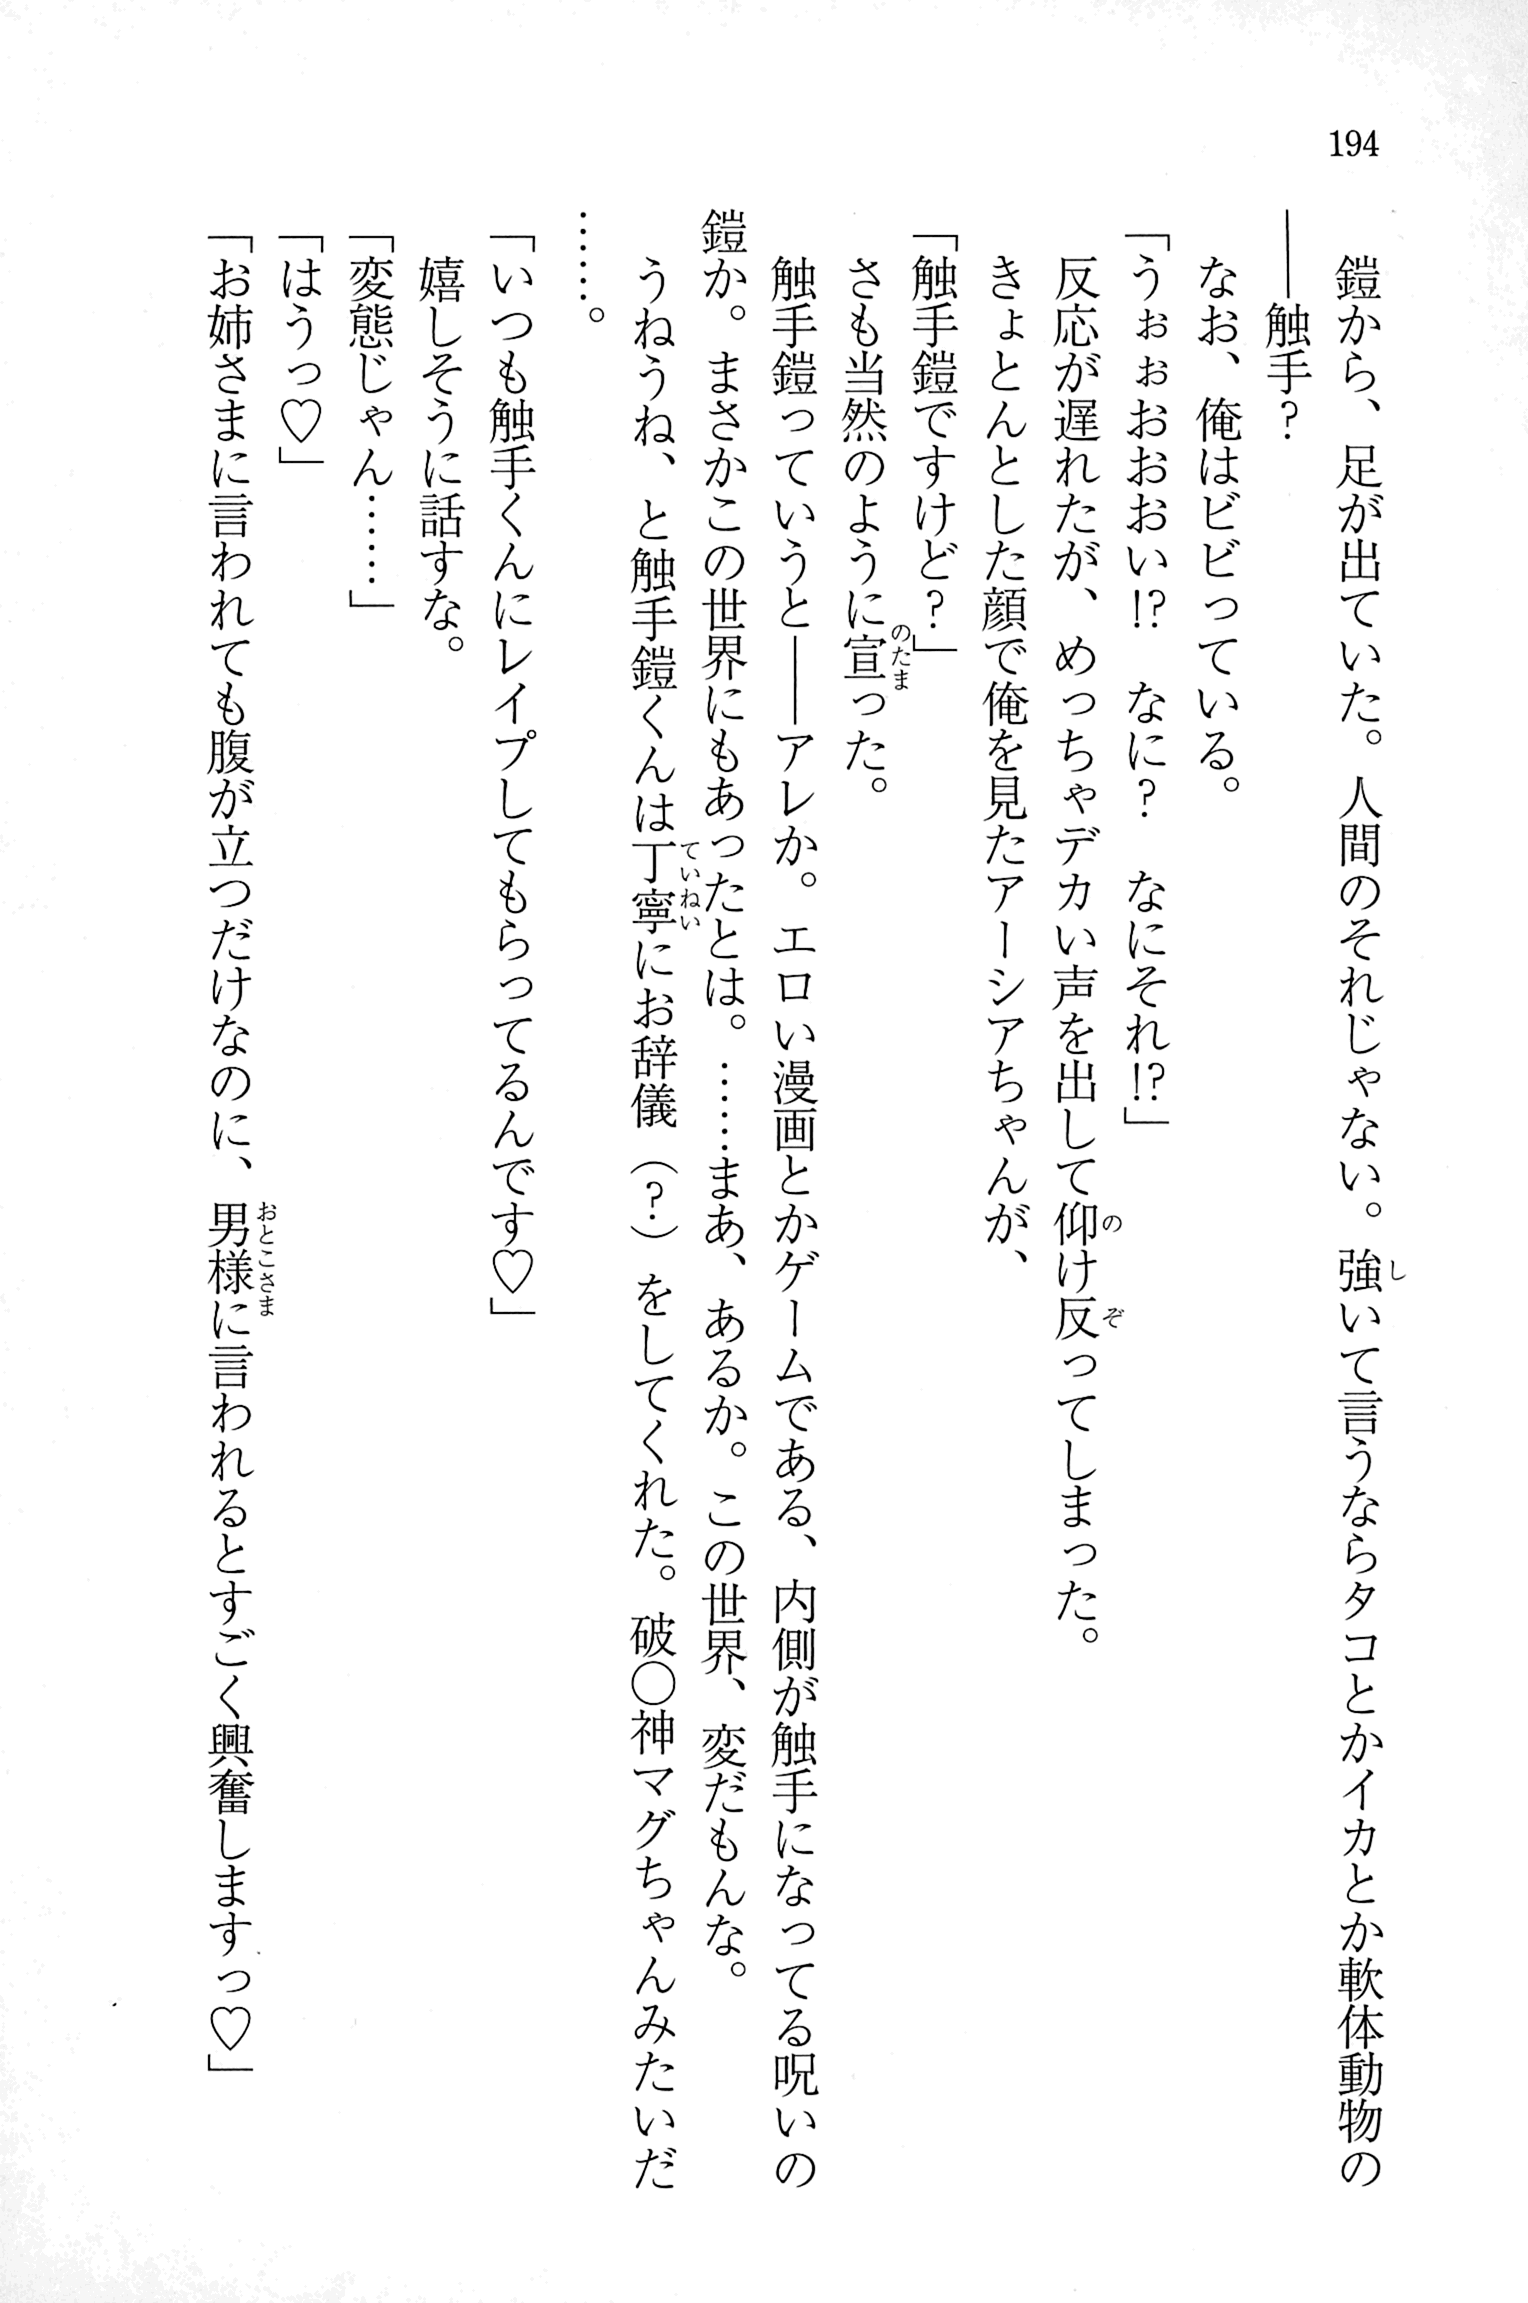 194
鎧から、足が出ていた。人間のそれじゃない。強いて言うならタコとかイカとか軟体動物の
――触手?
なお、俺はビビっている。
「うぉぉおおおい!? なに? なにそれ!?」
反応が遅れたが、めっちゃデカい声を出して仰け反ってしまった。
きょとんとした顔で俺を見たアーシアちゃんが、
「触手鎧ですけど?」
さも当然のように宣った。
触手鎧っていうと――アレか。エロい漫画とかゲームである、内側が触手になってる呪いの
鎧か。まさかこの世界にもあったとは。……まあ、あるか。この世界、変だもんな。
うねうね、と触手鎧くんは丁寧にお辞儀(?)をしてくれた。破〇神マグちゃんみたいだ
……。
「いつも触手くんにレイプしてもらってるんです♡」
嬉しそうに話すな。
「変態じゃん……」
「はうっ♡」
「お姉さまに言われても腹が立つだけなのに、男様に言われるとすごく興奮しますっ♡」